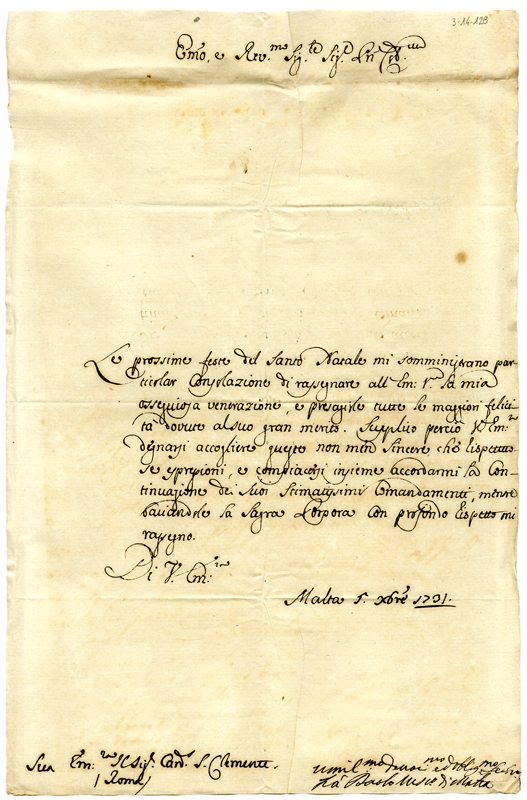 3-14-128
Emo, e Rev.mo Sig.re Sig.re
Le prossime feste del Santo Natale mi somministrano par
ticolar Consolazione di rassegnare all'Em: V.ra la mia
ossequiosa venerazione, e presagirle tutte le maggiori felici
tà dovute al suo gran merito. Supplico perciò V.ra Em:
degnarsi accogliere queste non men sincere che rispetto
se espressioni, e compiacersi insieme accordarmi la Con
tinuazione dei suoi stimatissimi Comandamenti, mentre
baciandole la Sagra Porpora con profondo rispetto mi
rassegno.
Di V.ra Em:za
Malta 5. Xbre 1731.
Sua Em:za Il Sig.r Card. S. Clemente.
/ Roma /
umil.mo
di Malta